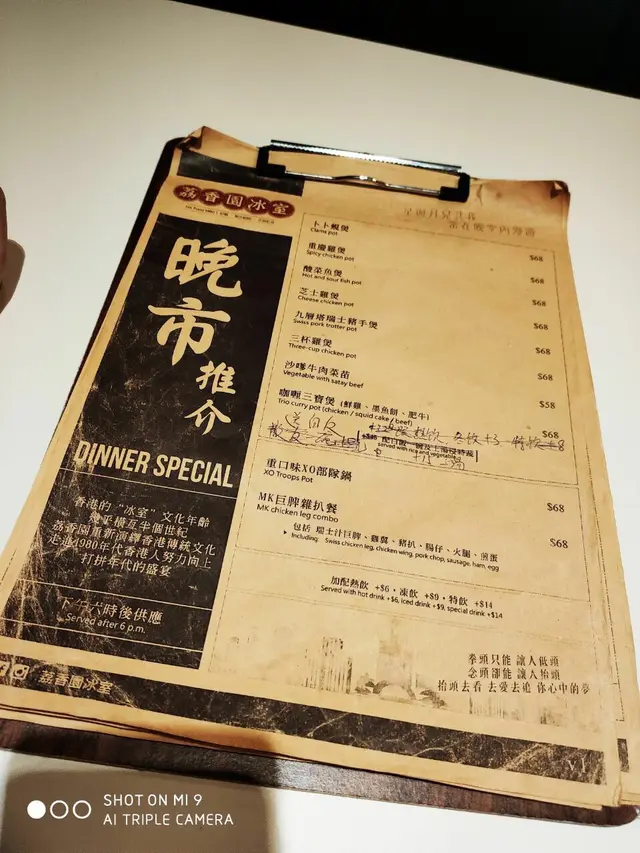 荔香園冰室
晚市
推介
DINNER SPECIAL
香港的"冰室"文化年齡
幾乎橫互半個世紀
荔香園重新演繹香港傳統文化
走進1980年代香港人努力向上
打拼年代的盛宴
下午六時後供應
Served after 6 p.m.
荔香園冰室
卜卜蜆煲
Clams pot
$68
重慶雞煲
Spicy chicken pot
$68
酸菜魚煲
Hot and sour fish pot
$68
芝士雞煲
Cheese chicken pot
$68
九層塔瑞士豬手煲
Swiss pork trotter pot
$68
三杯雞煲
Three-cup chicken pot
$68
沙嗲牛肉菜苗
Vegetable with satay beef
$58
咖喱三寶煲 (鮮雞、墨魚餅、肥牛)
Trio curry pot (chicken / squid cake / beef)
$68
served with rice and vegetable
重口味XO部隊鍋
XO Troops Pot
$68
MK巨髀雜扒餐
MK chicken leg combo
$68
包括 瑞士汁巨髀、雞翼、豬扒、腸仔、火腿、煎蛋
Including: Swiss chicken leg, chicken wing, pork chop, sausage, ham, egg
加配熱飲 +$6，凍飲 +$9，特飲 +$14
Served with hot drink +$6, iced drink +$9, special drink +$14
拳頭只能 讓人低頭
念頭卻能 讓人抬頭
抬頭去看 去愛去追 你心中的夢
SHOT ON MI 9
AI TRIPLE CAMERA